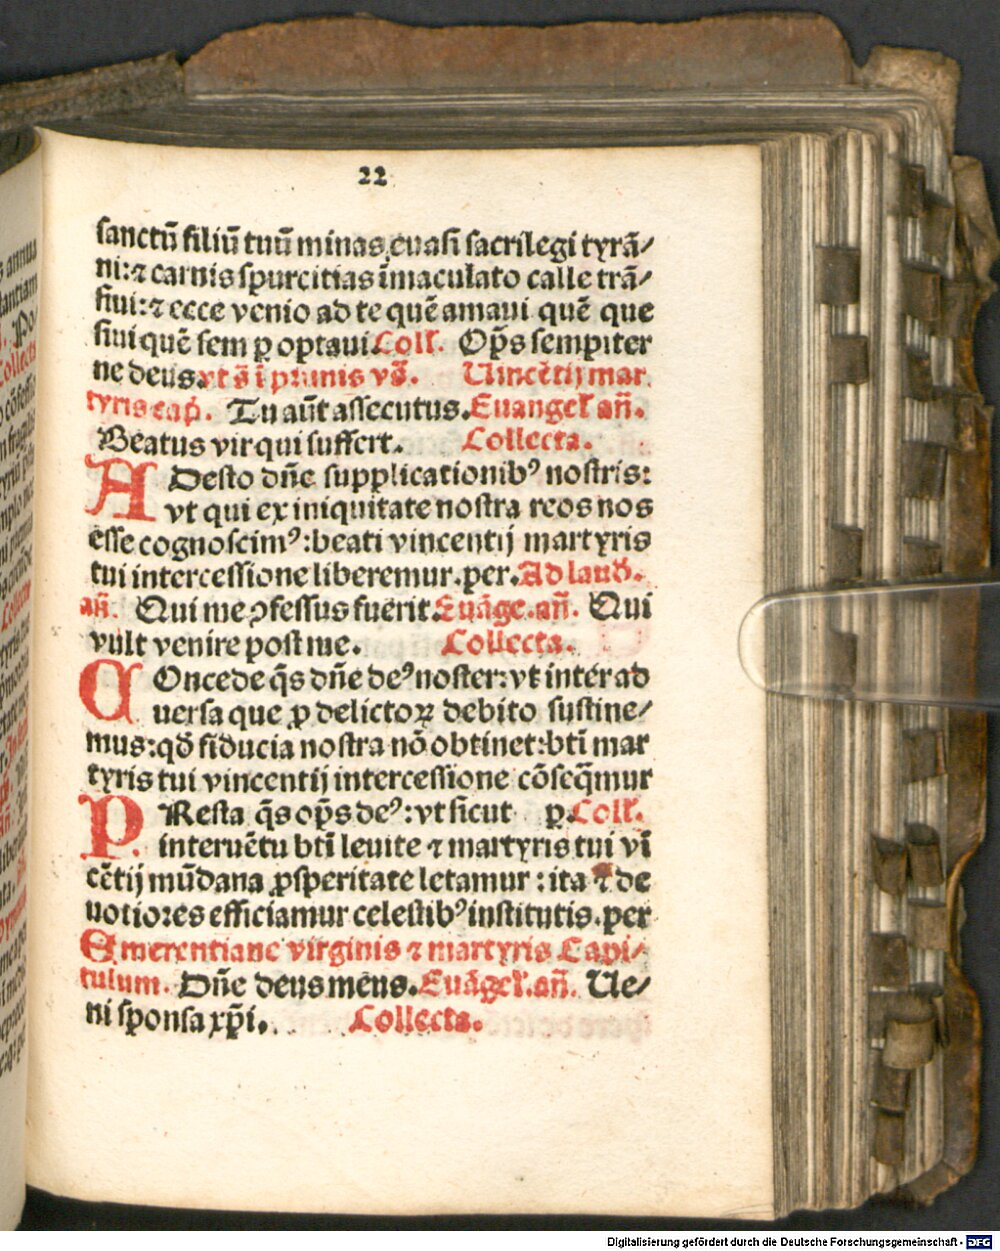 22
sanctū filiū tuū minas euasi sacrilegi tyrā/
ni:⁊ carnis spurcitias īmaculato calle trā/
siui:⁊ ecce venio ad te quē amaui quē que
siui quē sem ꝑ optaui Coll'. Op̄s sempiter
ne deus. vt s̄ ī primis vs̄. Uincētij mar
tyris cap̄. Tu aūt assecutus. Euangel' an̄.
Beatus vir qui suffert. Collecta.
ADesto dn̄e supplicationib⁹ nostris:
vt qui ex iniquitate nostra reos nos
esse cognoscim⁹: beati vincentij martyris
tui intercessione liberemur. per. Ad laud'.
an̄. Qui me ꝯfessus fuerit. Euāge. an̄. Qui
vult venire post me. Collecta.
COncede q̄s dn̄e de⁹ noster: vt inter ad
uersa que ꝓ delictoꝝ debito sustine/
mus: qđ fiducia nostra nō obtinet: bt̄i mar
tyris tui vincentij intercessione cōseq̄mur
PResta q̄s op̄s de⁹: vt sicut ꝑ. Coll'.
interuētu bt̄i leuite ⁊ martyris tui vī
cētij mūdana ꝓsperitate letamur: ita ⁊ de
uotiores efficiamur celestib⁹ institutis. per
Emerentiane virginis ⁊ martyris Capi/
tulum. Dn̄e deus meus. Euāgel'. an̄. Ue/
ni sponsa xp̄i. Collecta.
Digitalisierung gefördert durch die Deutsche Forschungsgemeinschaft - DFG